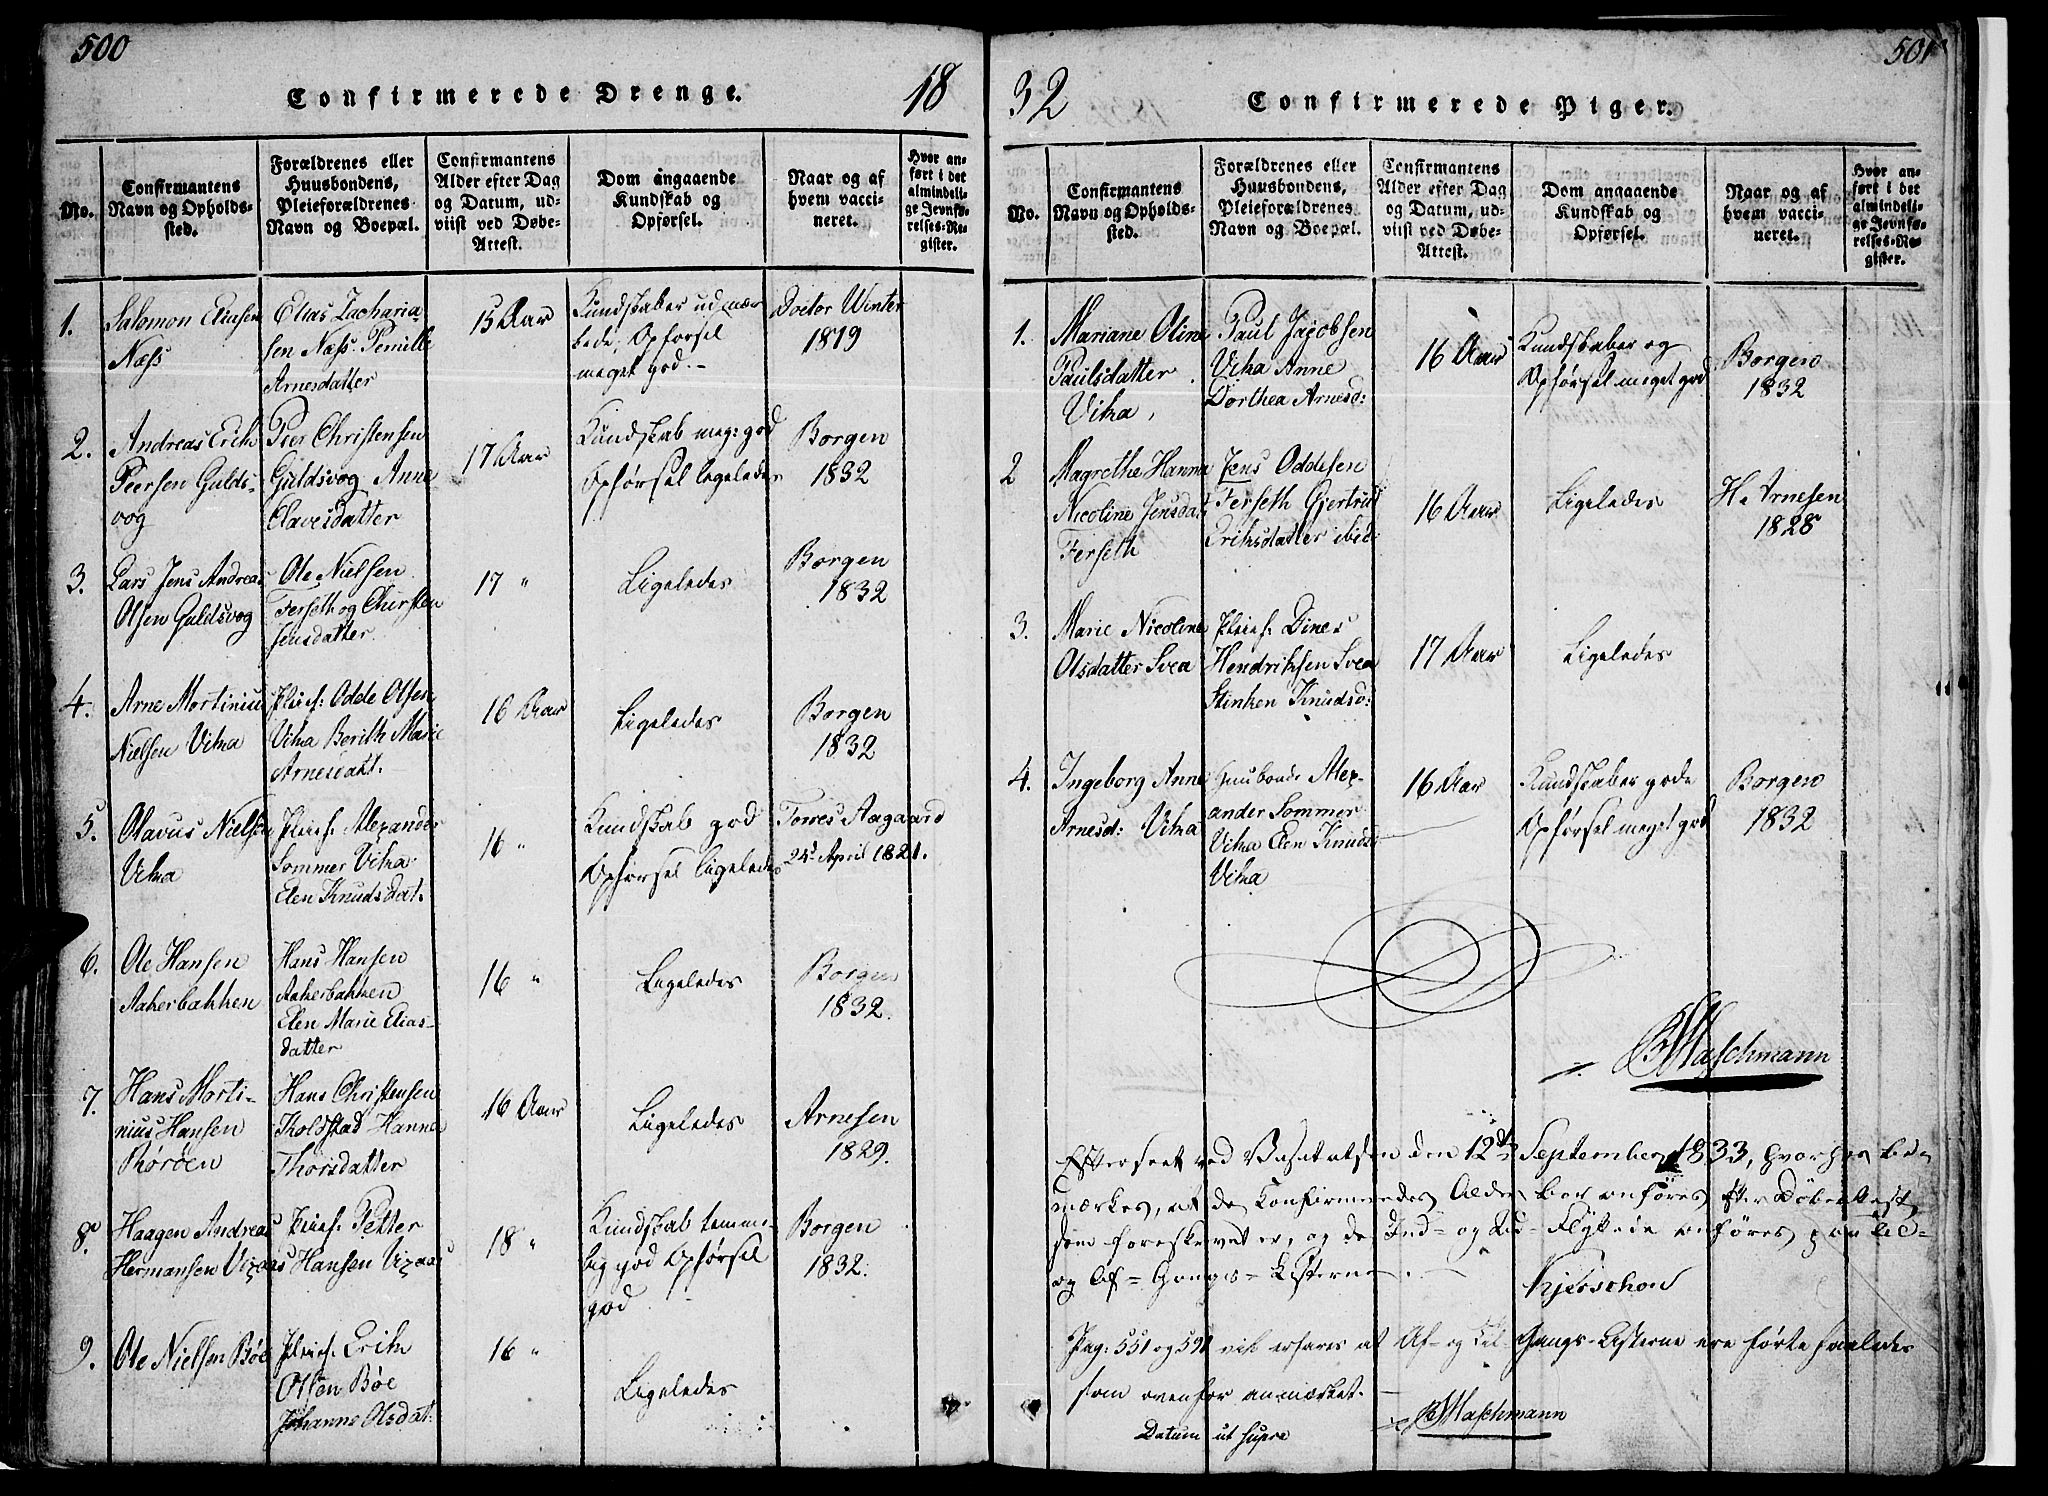 500
Confirmerede Drenge.
18
No.
Confirmantens
Navn og Opholds-
sted.
Forældrenes eller
Huusbondens,
Pleieforældrenes
Navn og Boepæl.
Confirmantens
Alder efter Dag
og Datum, ud-
viist ved Døbe-
Attest.
Dom angaaende
Kundskab og
Opførsel.
Naar og af
hvem vacci-
neret.
Hvor an-
ført i det
almindeli-
ge Jevnfø-
relses-Re-
gister.
1.
Salomon Eliasen
Næss
Elias Zacharia-
sen Næss. Pernille
Arnesdatter
15 Aar
Kundskaber udmær
kede; Opførsel
meget god.-
Doctor Winter
1819
2.
Andreas Erik
Peersen Gulds-
vog
Peer Christensen
Guldsvog Anne
Olavesdatter
17 Aar
Kundskab meg: god
Opførsel legeledes
Borgen
1832
3.
Lars Jens Andreas
Olsen Guldsvog
Ole Nielsen
Ferseth og Chirsten
Jensdatter.
17 "
Ligeledes
Borgen
1832
4.
Arne Mortinius
Nielsen Vikna
Pleief: Odde Olsen
Vikna Berith Marie
Arnesdatt.
16 Aar
Ligeledes
Borgen
1832
5.
Olavus Nielsen
Vikna
Pleief: Alexander
Sommer Vikna
Elen Knudsdat.
16 "
Kundskab god
Opførsel ligeledes
Torres Aagaard
24d April 1821.
6.
Ole Hansen
Aakerbakken
Hans Hansen
Aakerbakken
Elen Marie Elias-
datter
16 "
Ligeledes
Borgen
1832.
7.
Hans Morti-
nius Hansen
Rörõen
Hans Christensen
Koldstad Hanna
Thorsdatter
16 Aar
Ligeledes
Arnesen
1829.
8.
Haagen Andreas
Hermansen Vizaas
Pleief. Petter
Hansen Vizaas
18 "
Kundskab temme-
lig god Opførsel
god
Borgen
1832.
9.
Ole Nielsen Böe
Pleief. Erik
Olsen Böe
Johanne Olsdat:
16 "
Ligeledes
501
32
Confirmerede Piger.
No.
Confirmantens
Navn og Opholds-
sted.
Forældrenes eller
Huusbondens,
Pleieforældrenes
Navn og Boepæl.
Confirmantens
Alder efter Dag
og Datum, ud-
viist ved Døbe-
Attest.
Dom angaaende
Kundskab og
Opførsel.
Naar og af
hvem vacci-
neret.
Hvor an-
ført i det
almindeli-
ge Jevnfø-
relses-Re-
gister.
1.
Mariane Oline
Paulsdatter
Vikna,
Paul Jacobsen
Vikna Anne
Dorthea Arnesd:
16 Aar
Kundskaber og
Opførsel meget god
Borgen
1832
2
Magrethe Hanna
Nicoline Jensdat
Ferseth
Jens Oddesen
Ferseth Gjertrud
Eriksdatter ibid:
16 Aar
Ligeledes
H. Arnesen
1828
3.
Marie Nicoline
Olsdatter Svea
Pleief: Dines
Hendriksen Svea
Stinken Knudsd:
17 Aar
Ligeledes
4.
Ingeborg Anne
Arnesd: Vikna
Huusbonde Alex-
ander Sommer
Vikna Elen Knuds-
Vikna
16 Aar
Kundskaber gode
Opførsel meget god
Borgen
1832
BMaschmann
Efterseet ved Visitatsen den 12te September 1833, hvorhos be-
mærkes, at de Confirmeredes Alder bør anføres efter Døbe Attest
som foreskrevet er, og de Ind- og Ud- Flyttede anføres paa Til-
og Af-Gangs-Listerne.
Kjerschow
Pag: 551 og 591 vil erfares at Af- og Til-Gangs-Listerne ere førte saaledes
som ovenfor anmærket. -
Datum ut supra
BMaschmann